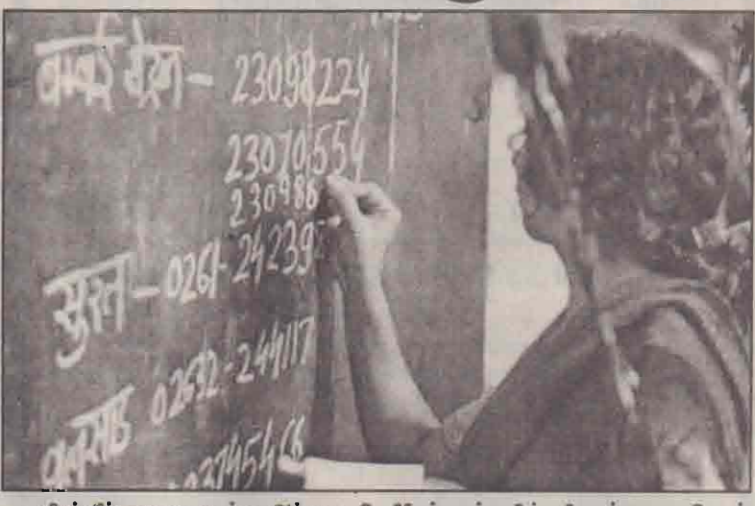 बम्बई सेंट्रल - 23098224
23070554
230986
सुरत - 0261-24239
वलसाड 02632-244117
23745466